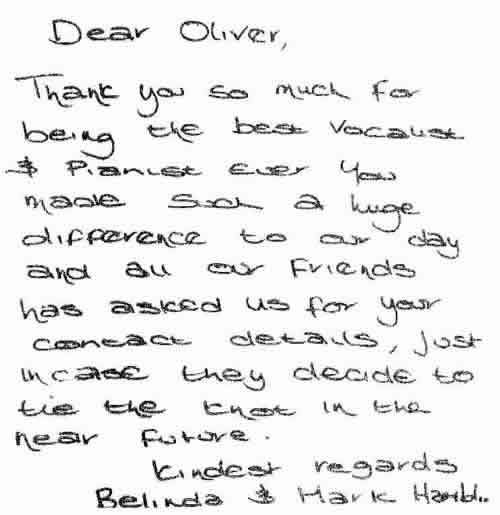 Dear Oliver,
Thank you so much for
being the best vocalist
& Pianist ever you
made such a huge
difference to our day
and all our friends
has asked us for your
contact details, just
incase they decide to
tie the knot in the
near future.
Kindest regards
Belinda & Mark